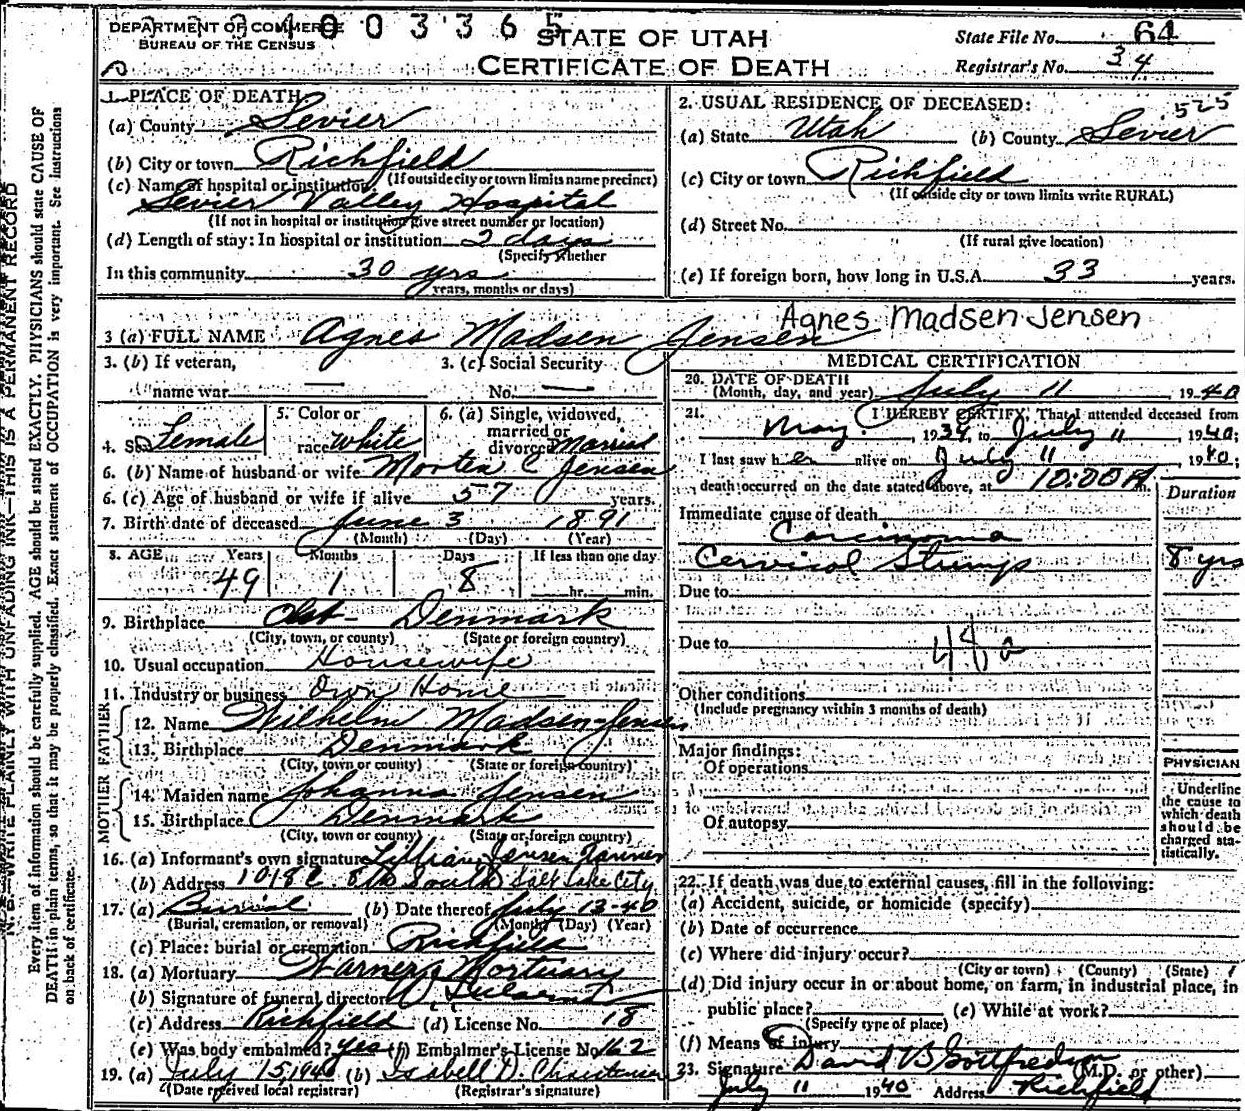 DEPARTMENT OF COMMERCE
BUREAU OF THE CENSUS
3 4 0 0 3 3 6 5
STATE OF UTAH
CERTIFICATE OF DEATH
State File No. 64
Registrar's No. 34
N. B.—WRITE PLAINLY WITH UNFADING INK—THIS IS A PERMANENT RECORD
Every item of information should be carefully supplied. AGE should be stated EXACTLY. PHYSICIANS should state CAUSE OF
DEATH in plain terms, so that it may be properly classified. Exact statement of OCCUPATION is very important. See instructions
on back of certificate.
1. PLACE OF DEATH
(a) County Sevier
(b) City or town Richfield
(If outside city or town limits name precinct)
(c) Name of hospital or institution:
Sevier Valley Hospital
(If not in hospital or institution give street number or location)
(d) Length of stay: In hospital or institution 2 days
(Specify whether
In this community 30 yrs
years, months or days)
2. USUAL RESIDENCE OF DECEASED: 525
(a) State Utah (b) County Sevier
(c) City or town Richfield
(If outside city or town limits write RURAL)
(d) Street No.
(If rural give location)
(e) If foreign born, how long in U.S.A. 33 years.
3 (a) FULL NAME Agnes Madsen Jensen
Agnes Madsen Jensen
3. (b) If veteran,
name war —
3. (c) Social Security
No. —
4. Sex Female
5. Color or
race White
6. (a) Single, widowed,
married or
divorced Married
6. (b) Name of husband or wife Morten C Jensen
6. (c) Age of husband or wife if alive 57 years.
7. Birth date of deceased June 3 1891
(Month) (Day) (Year)
8. AGE Years Months Days If less than one day
49 1 8 hr. min.
9. Birthplace Denmark
(City, town, or county) (State or foreign country)
10. Usual occupation Housewife
11. Industry or business Own Home
FATHER
12. Name Wilhelm Madsen-Jensen
13. Birthplace Denmark
(City, town or county) (State or foreign country)
MOTHER
14. Maiden name Johanna Jensen
15. Birthplace Denmark
(City, town or county) (State or foreign country)
16. (a) Informant's own signature Lillian Jensen
(b) Address 1018 E. 8th South Salt Lake City
17. (a) Burial (b) Date thereof July 13-40
(Burial, cremation, or removal) (Month) (Day) (Year)
(c) Place: burial or cremation Richfield
18. (a) Mortuary Warner's Mortuary
(b) Signature of funeral director W.
(c) Address Richfield (d) License No. 18
(e) Was body embalmed? yes (f) Embalmer's License No. 162
19. (a) July 15, 1940 (b) Isabell D. Christensen
(Date received local registrar) (Registrar's signature)
MEDICAL CERTIFICATION
20. DATE OF DEATH
(Month, day, and year) July 11 1940
21. I HEREBY CERTIFY, That I attended deceased from
May, 1934, to July 11, 1940;
I last saw her alive on July 11, 1940;
death occurred on the date stated above, at 10:00 A m.
Duration
Immediate cause of death
Carcinoma
Cervical Stump 8 yrs
Due to
Due to 48a
Other conditions
(Include pregnancy within 3 months of death)
Major findings:
Of operations
Of autopsy
PHYSICIAN
Underline
the cause to
which death
should be
charged sta-
tistically.
22. If death was due to external causes, fill in the following:
(a) Accident, suicide, or homicide (specify)
(b) Date of occurrence
(c) Where did injury occur?
(City or town) (County) (State)
(d) Did injury occur in or about home, on farm, in industrial place, in
public place? (e) While at work?
(Specify type of place)
(f) Means of injury
23. Signature David B Gottfredson
(M.D. or other)
July 11 1940 Address Richfield